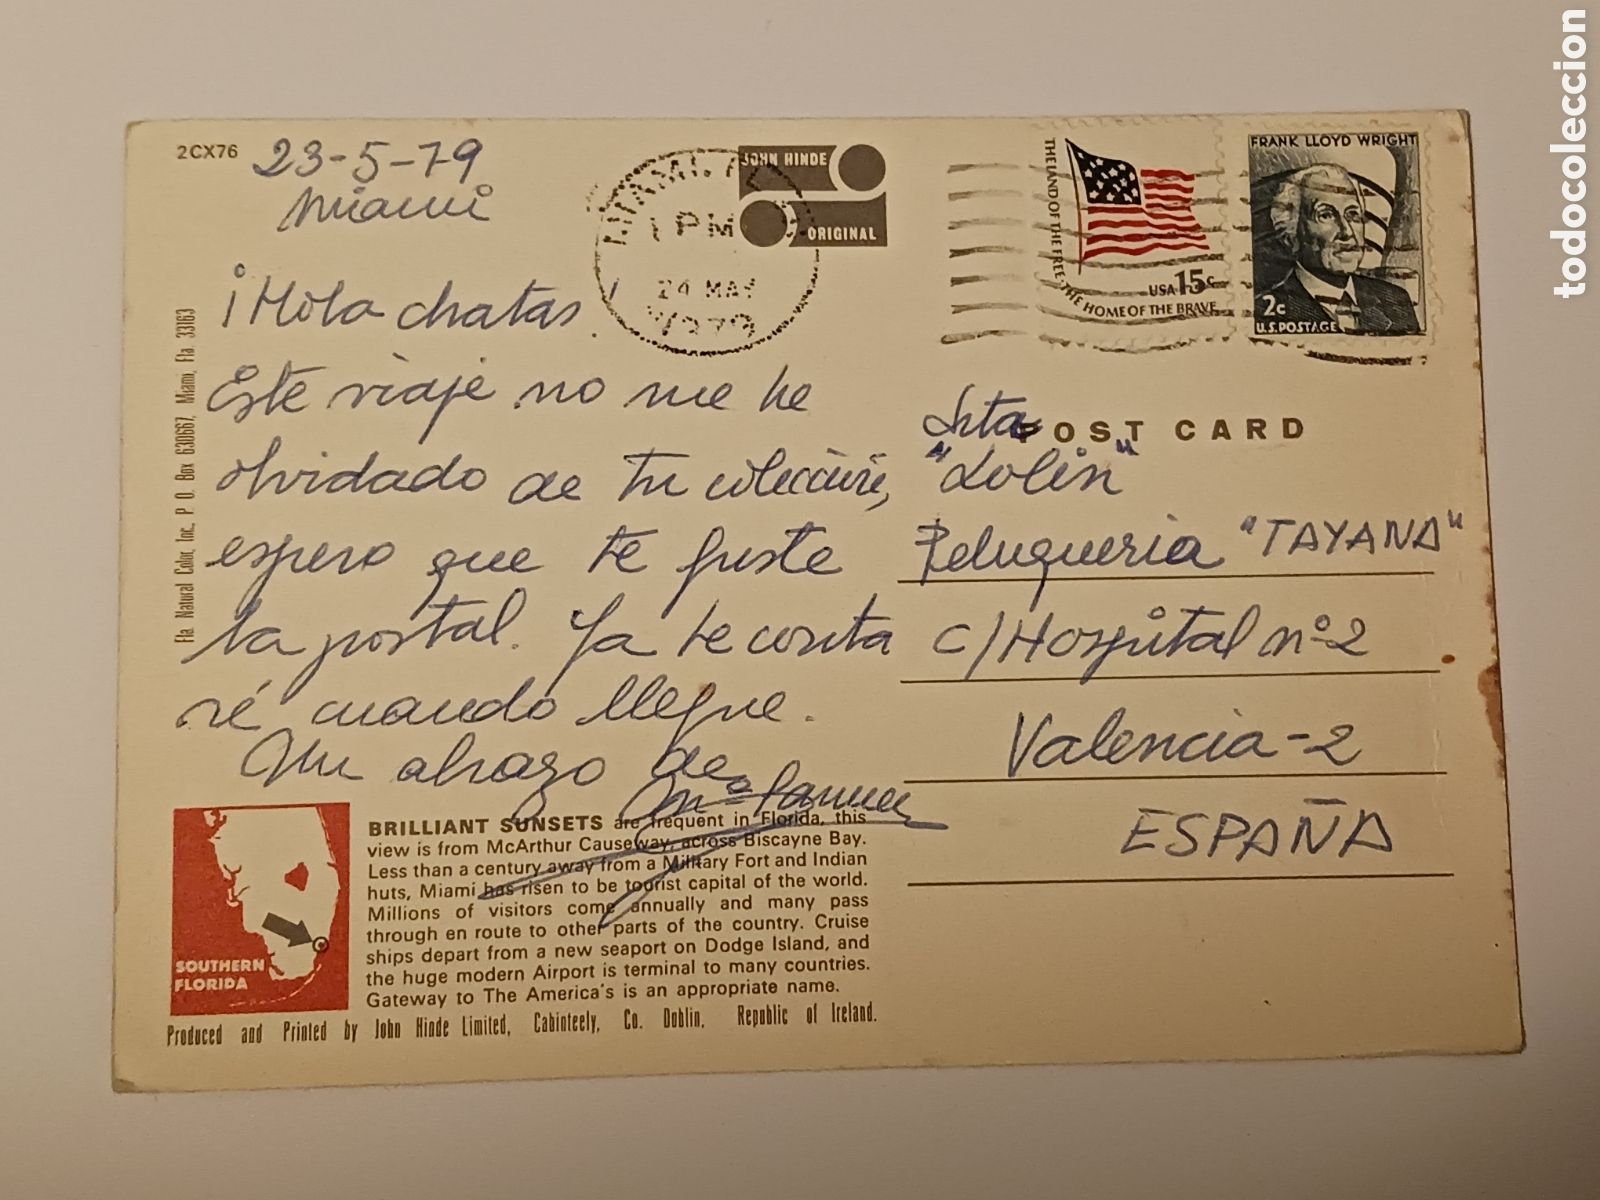 2CX76
23-5-79
Miami
¡Hola chatas!
Este viaje no me he
olvidado de tu colección,
espero que te guste
la postal. Ya te conta
ré cuando llegue.
Un abrazo de
Mª Carmen
MIAMI, FL
1 PM
24 MAY
1979
JOHN HINDE
ORIGINAL
THE LAND OF THE FREE, THE HOME OF THE BRAVE
USA 15c
FRANK LLOYD WRIGHT
2c
U.S. POSTAGE
POST CARD
Srta
"Lolin"
Peluqueria "TAYANA"
C/Hospital nº 2
Valencia-2
ESPAÑA
Fla Natural Color, Inc., P. O. Box 630667, Miami, Fla 33163
SOUTHERN
FLORIDA
BRILLIANT SUNSETS are frequent in Florida, this
view is from McArthur Causeway, across Biscayne Bay.
Less than a century away from a Military Fort and Indian
huts, Miami has risen to be tourist capital of the world.
Millions of visitors come annually and many pass
through en route to other parts of the country. Cruise
ships depart from a new seaport on Dodge Island, and
the huge modern Airport is terminal to many countries.
Gateway to The America's is an appropriate name.
Produced and Printed by John Hinde Limited, Cabinteely, Co. Dublin, Republic of Ireland.
todocoleccion